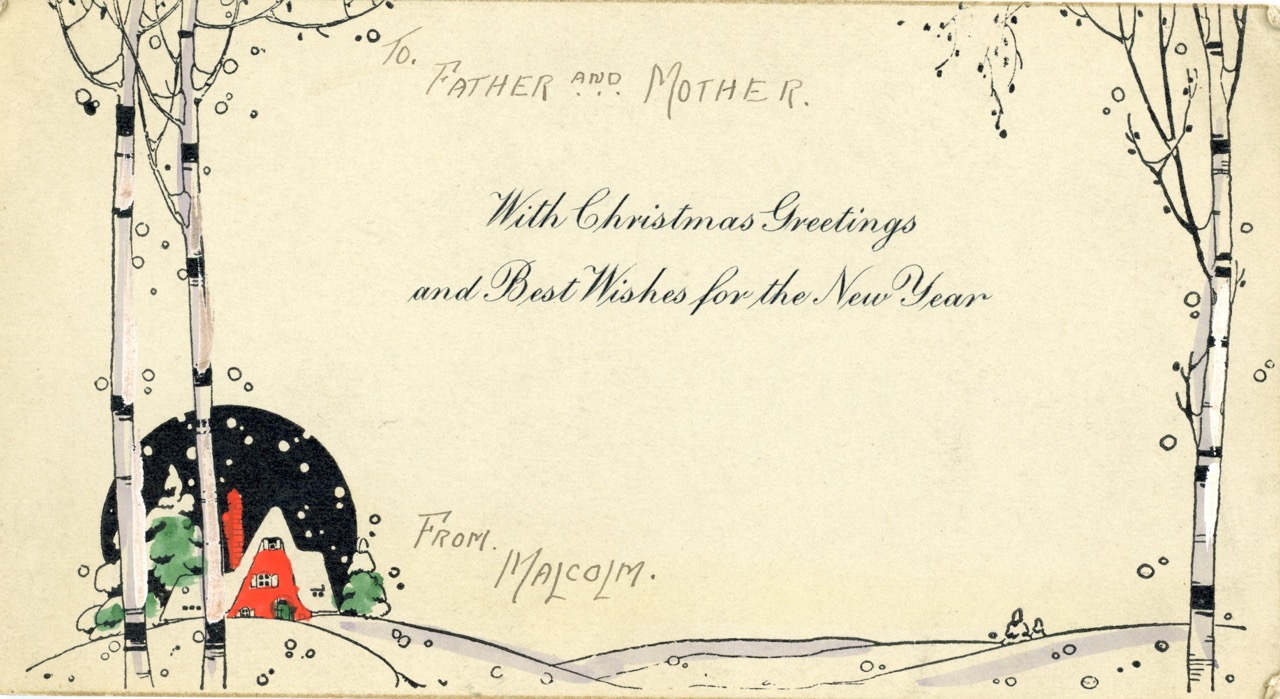 To.
FATHER AND MOTHER.
With Christmas Greetings
and Best Wishes for the New Year
FROM.
MALCOLM.